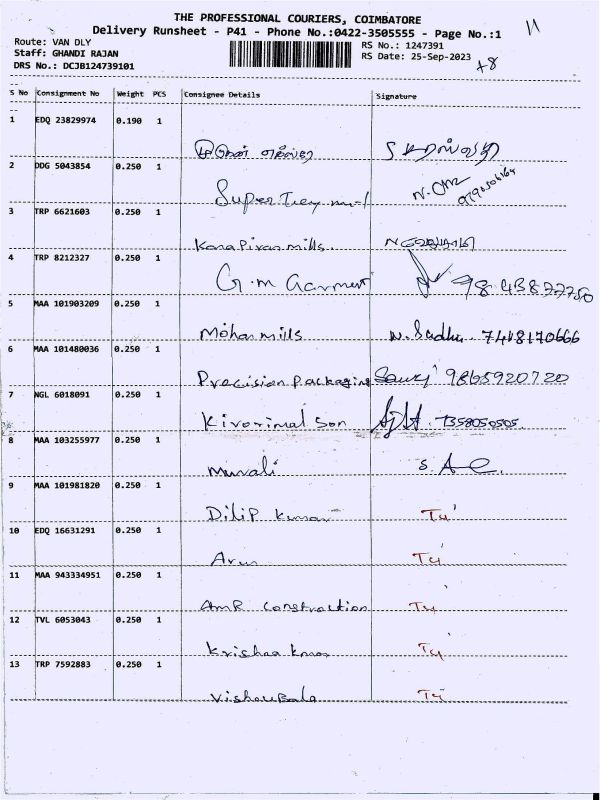 THE PROFESSIONAL COURIERS, COIMBATORE
Delivery Runsheet - P41 - Phone No.:0422-3505555 - Page No.:1
11
Route: VAN DLY
RS No.: 1247391
Staff: GHANDI RAJAN
RS Date: 25-Sep-2023
+8
DRS No.: DCJB124739101
S No Consignment No Weight PCS Consignee Details Signature
1 EDQ 23829974 0.190 1
2 DDG 5043854 0.250 1
Super
3 TRP 6621603 0.250 1
Kanapiran mills.
4 TRP 8212327 0.250 1
G.M Garment
5 MAA 101903209 0.250 1
Mohan mills N. Sadhu 7448170666
6 MAA 101480036 0.250 1
Precision packaging 9865920720
7 NGL 6018091 0.250 1
Son 7358050505
8 MAA 103255977 0.250 1
Murali
9 MAA 101981820 0.250 1
Dilip Kumar
10 EDQ 16631291 0.250 1
Arun
11 MAA 943334951 0.250 1
AMR Construction
12 TVL 6053043 0.250 1
Krishna Kumar
13 TRP 7592883 0.250 1
VishnuBala